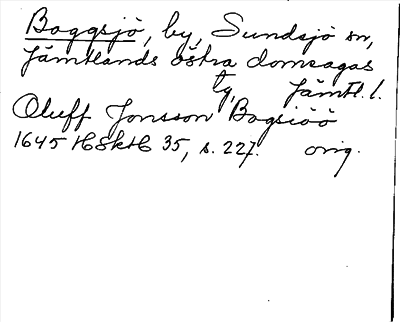 Boggsjö, by, Sundsjö sn,
Jämtlands östra domsagas
tg, Jämtl. l.
Oluff Jonsson Bogsiöö
1645 HSktH 35, s. 227. orig.